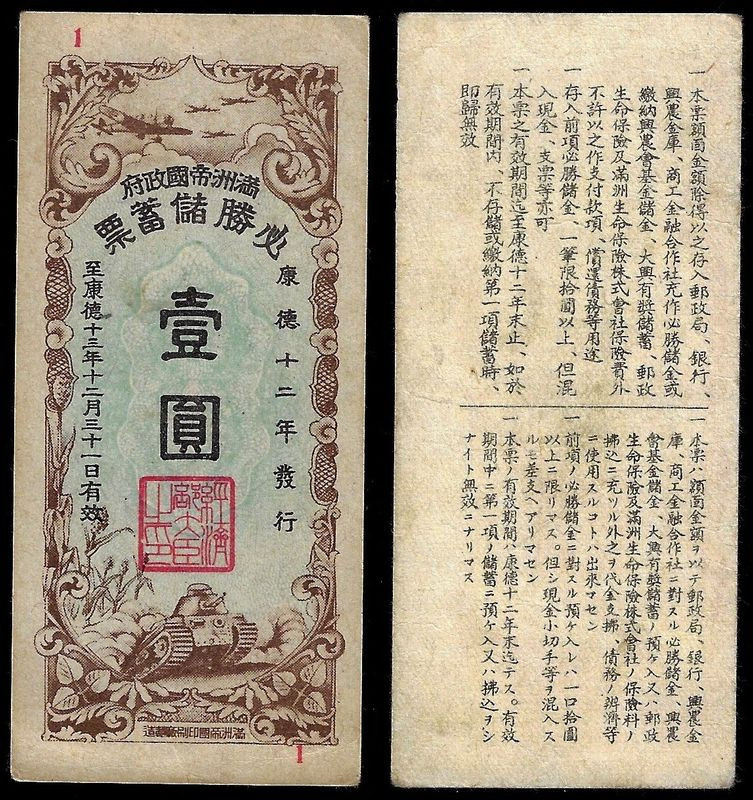 1
滿洲帝國政府
必勝儲蓄票
康德十二年發行
壹圓
至康德十三年十二月三十一日有效
經濟
部大臣
之印
滿洲帝國印刷廠製造
1
一 本票額面金額除得以之存入郵政局、銀行、
興農金庫、商工金融合作社充作必勝儲金或
繳納興農會基金儲金、大興有奬儲蓄、郵政
生命保險及滿洲生命保險株式會社保險費外
不許以之作支付款項、償還債務等用途
一 存入前項必勝儲金、一筆限拾圓以上、但混
入現金、支票等亦可
一 本票之有效期間迄至康德十二年末止、如於
有效期間內、不存儲或繳納第一項儲蓄時、
即歸無效
一 本票ハ額面金額ヲ以テ郵政局、銀行、興農金
庫、商工金融合作社ニ對スル必勝儲金、興農
會基金儲金、大興有奬儲蓄ノ預ケ入又ハ郵政
生命保險及滿洲生命保險株式會社ノ保險料ノ
拂込ニ充ツル外之ヲ代金支拂、債務ノ辨濟等
ニ使用スルコトハ出來マセン
一 前項ノ必勝儲金ニ對スル預ケ入レハ一口拾圓
以上ニ限リマス。但シ現金小切手等ヲ混入ス
ルモ差支ヘアリマセン
一 本票ノ有效期間ハ康德十二年末迄テス。有效
期間中ニ第一項ノ儲蓄ニ預ケ入又ハ拂込ヲシ
ナイト無效ニナリマス